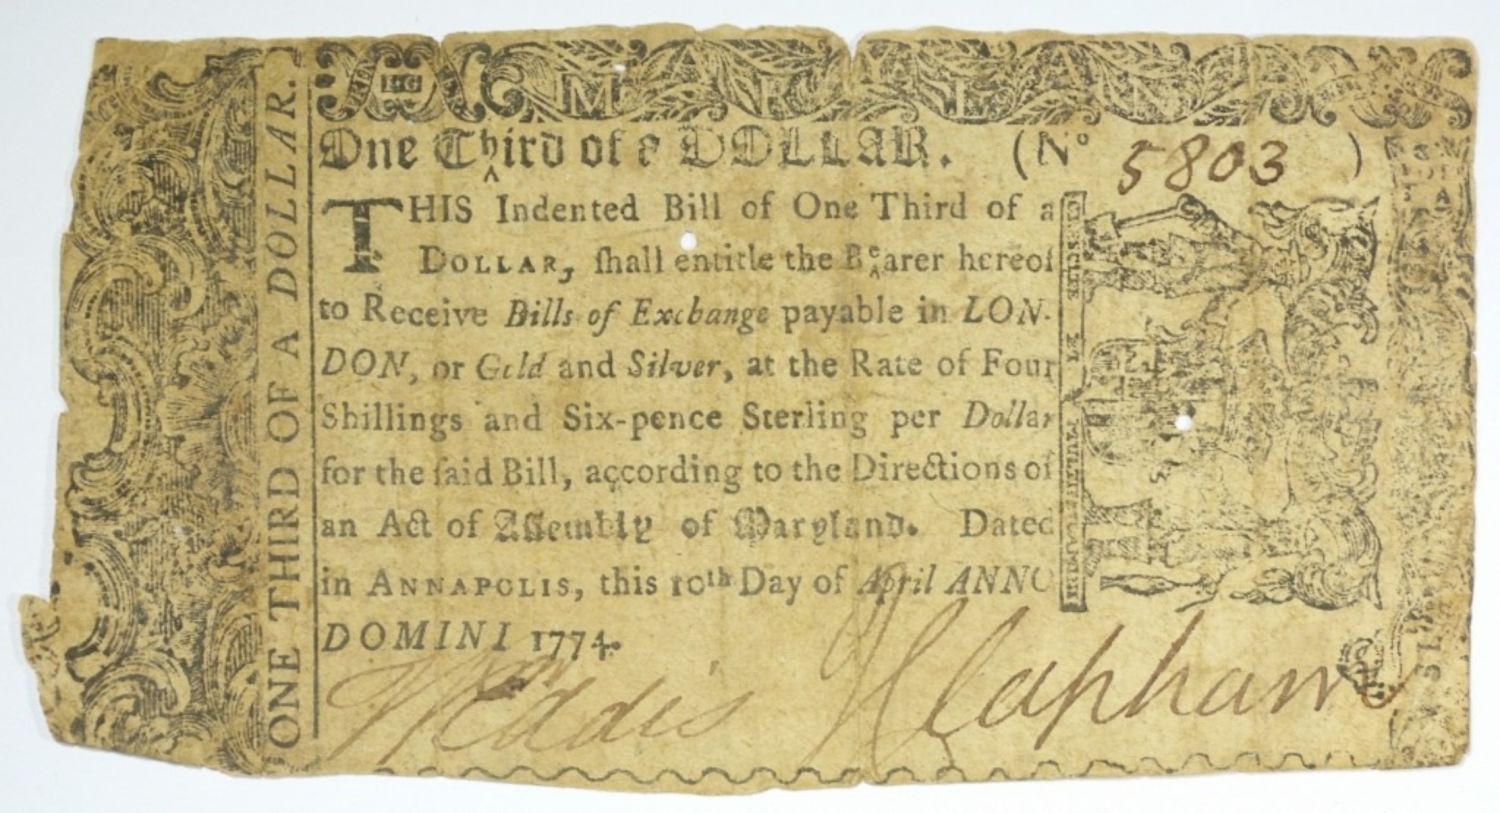 MARYLAND
One Third of a DOLLAR. (No 5803)
THIS Indented Bill of One Third of a
DOLLAR, ſhall entitle the Bearer hereof
to Receive Bills of Exchange payable in LON-
DON, or Gold and Silver, at the Rate of Four
Shillings and Six-pence Sterling per Dollar
for the ſaid Bill, according to the Directions of
an Act of Aſſembly of Maryland. Dated
in ANNAPOLIS, this 10th Day of April ANNO
DOMINI 1774.
Wm Eddis J Clapham
ONE THIRD OF A DOLLAR.
CRESCITE ET MULTIPLICAMINI